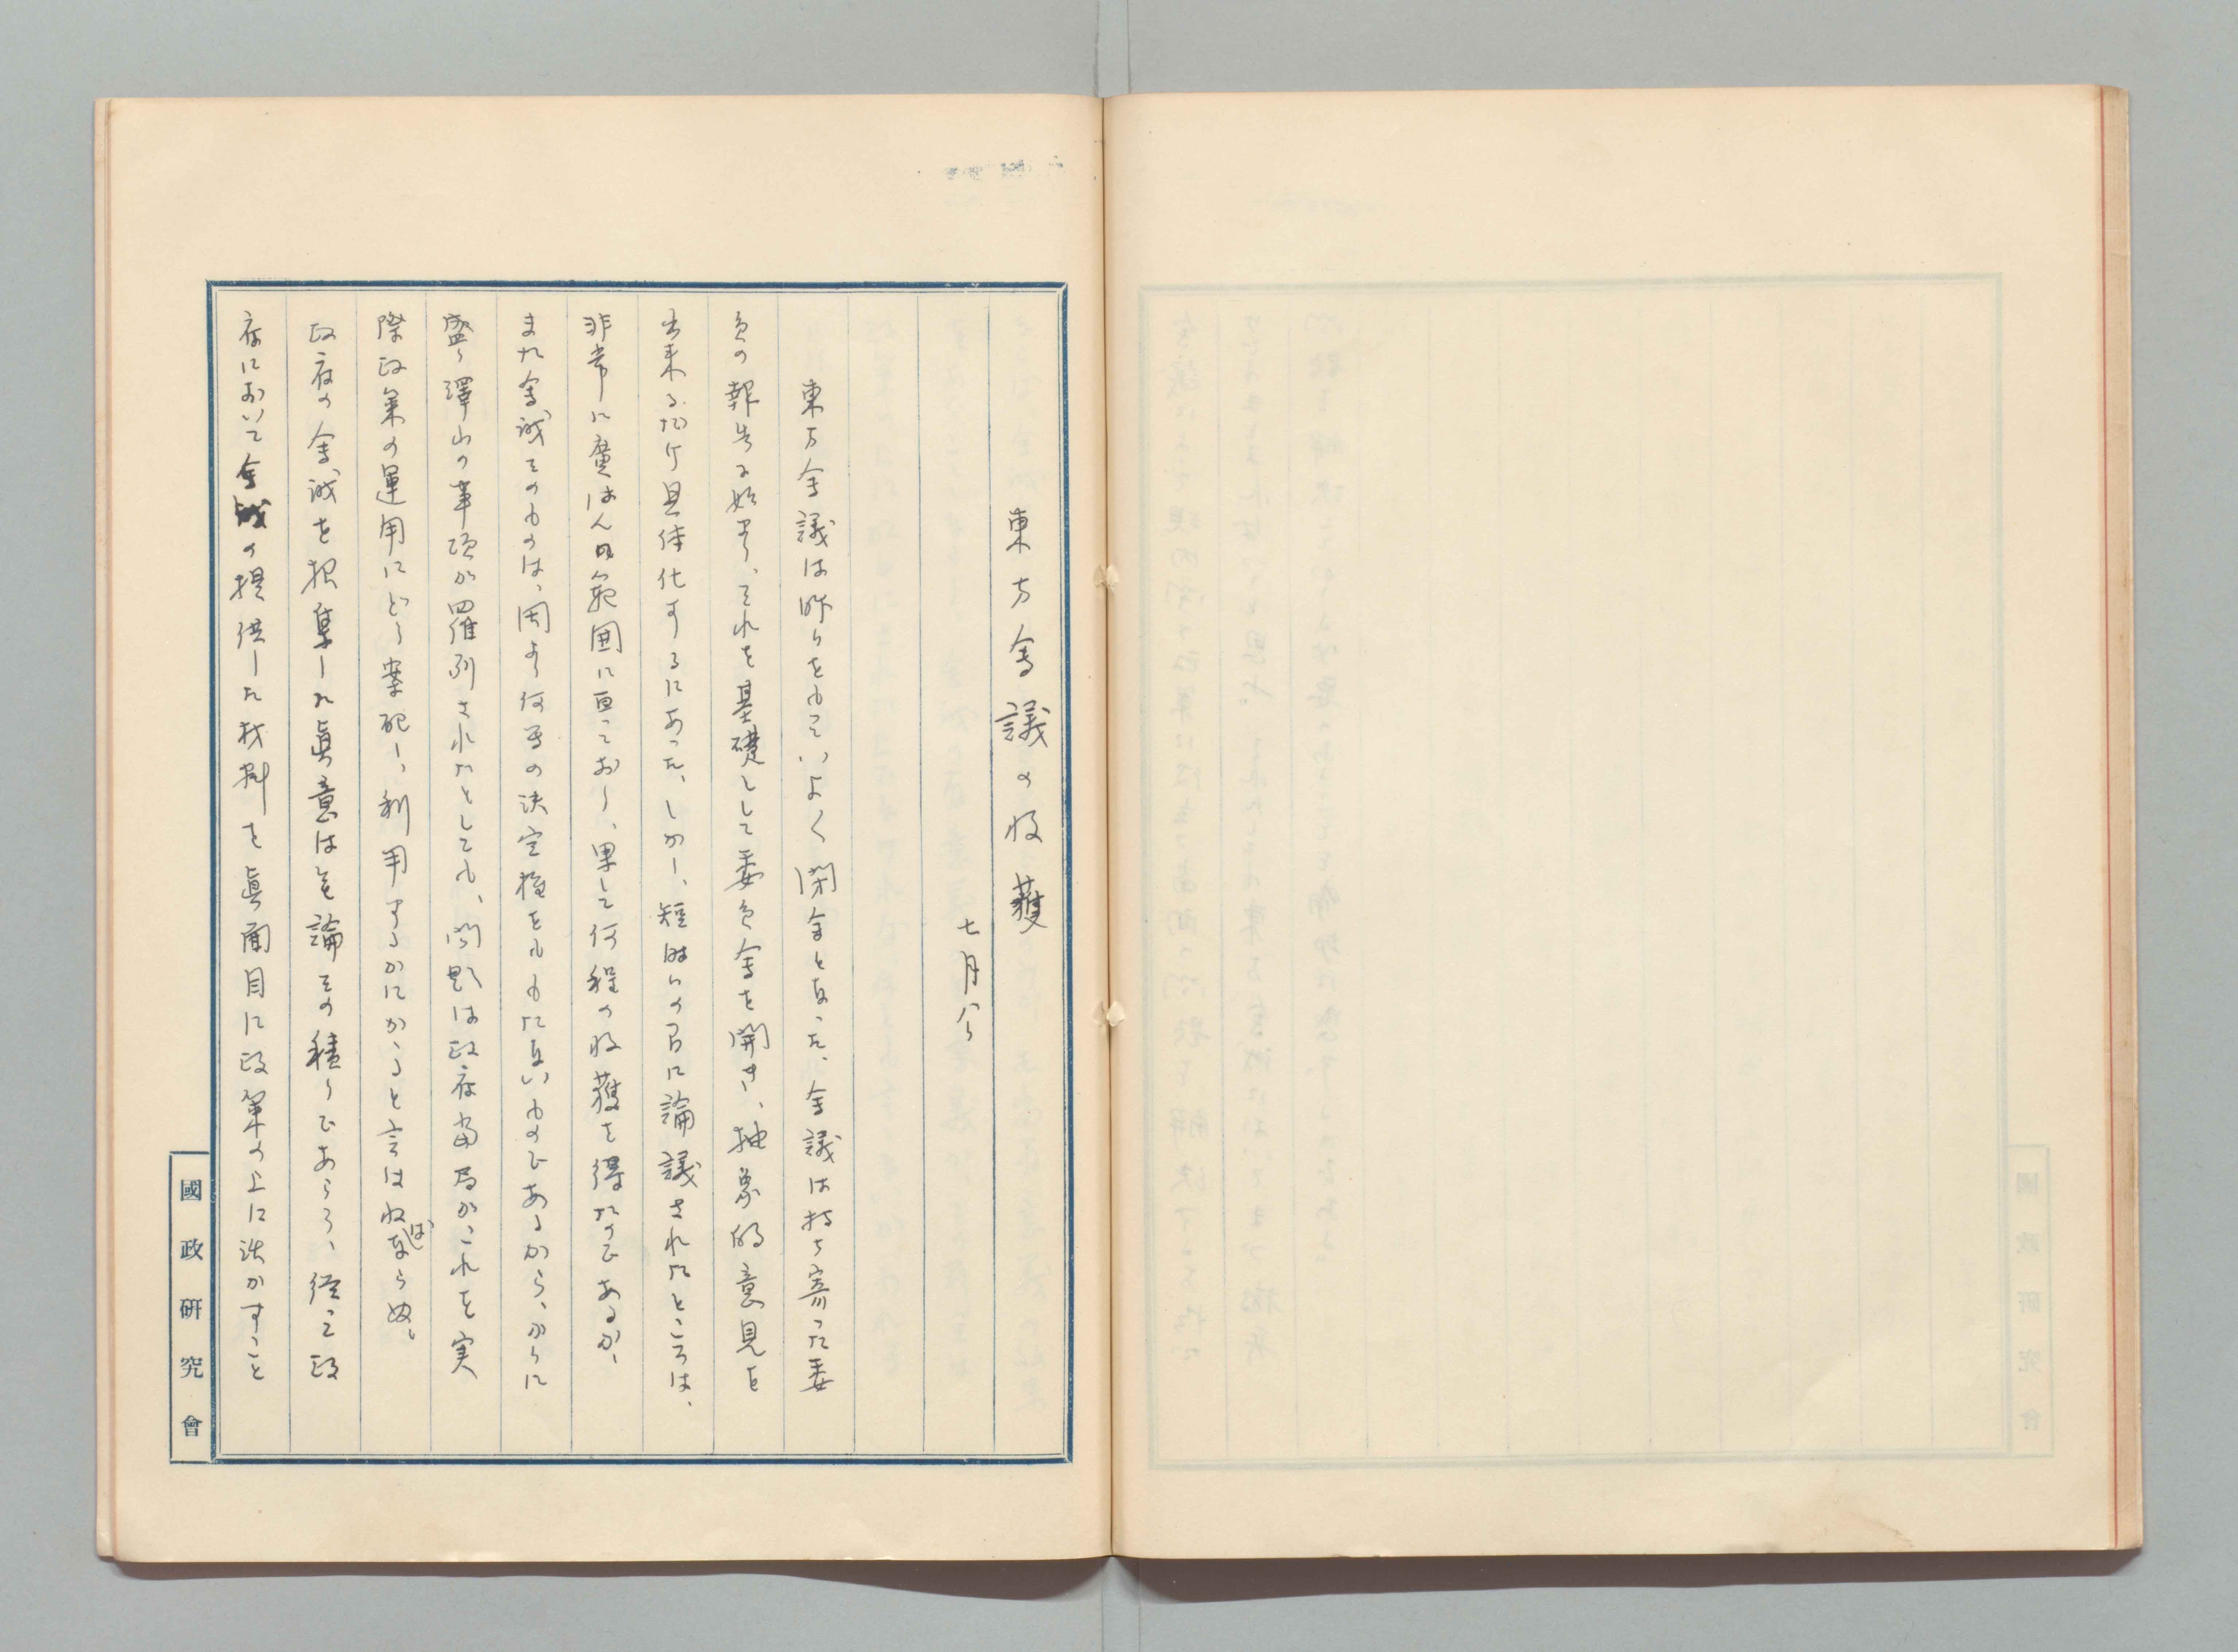 東方會議の收獲
七月八日
東方会議は昨日をもていよ〱閉会となつた、会議は持ち寄つた委
員の報告に始まり、それを基礎として委員會を開き、抽象的意見を
出来るだけ具体化するにあつた、しかし、短時日の間に論議されたところは、
非常に廣はんな範囲に亘つており、果して何程の收獲を得たのであるか、
また会議そのものは、固より何等の決定権をももたないものであるから、かりに
盛り澤山の事項が羅列されたとしても、問題は政府当局がこれを実
際政策の運用にどう案配し、利用するかにかゝると言はねばならぬ。
政府の会議を招集した眞意は無論その積りであらう、従つて政
府において会議の提供した材料を眞面目に政策の上に活かすこと
國政研究會